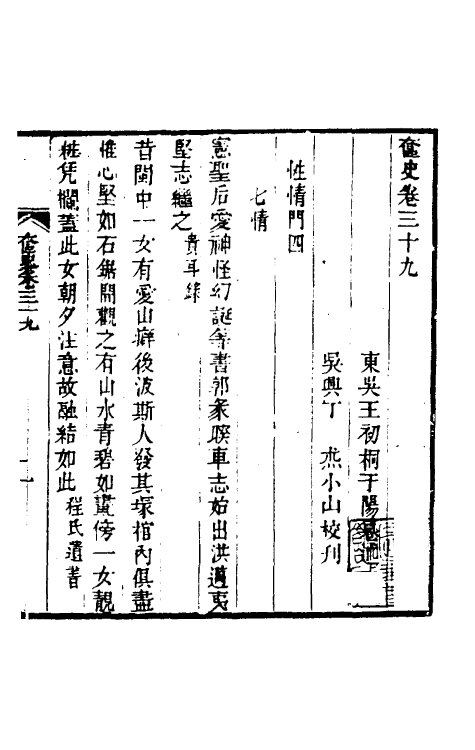 奩史卷三十九
東吳王初桐于陽
吳興丁 燕小山校刋
性情門四
七情
憲聖后愛神怪幻誕等書郭彖睽車志始出洪邁夷
堅志繼之 貴耳錄
昔閩中一女有愛山癖後波斯人發其塚棺內俱盡
惟心堅如石鋸開觀之有山水青碧如畫傍一女靚
粧凭欄葢此女朝夕注意故融結如此 程氏遺書
奩史卷三十九
一